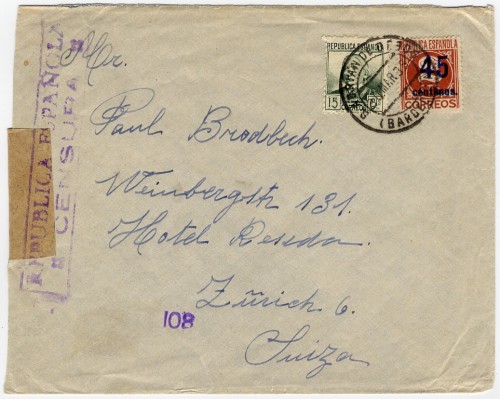 REPUBLICA ESPAÑOLA
CENSURA
Mr.
Paul Brodbeck.
Weinbergstr 131.
Hotel Reseda.
Zürich 6.
Suiza.
108
REPUBLICA ESPAÑOLA
15
ESPAÑOLA
45
centimos.
CORREOS
(BARC